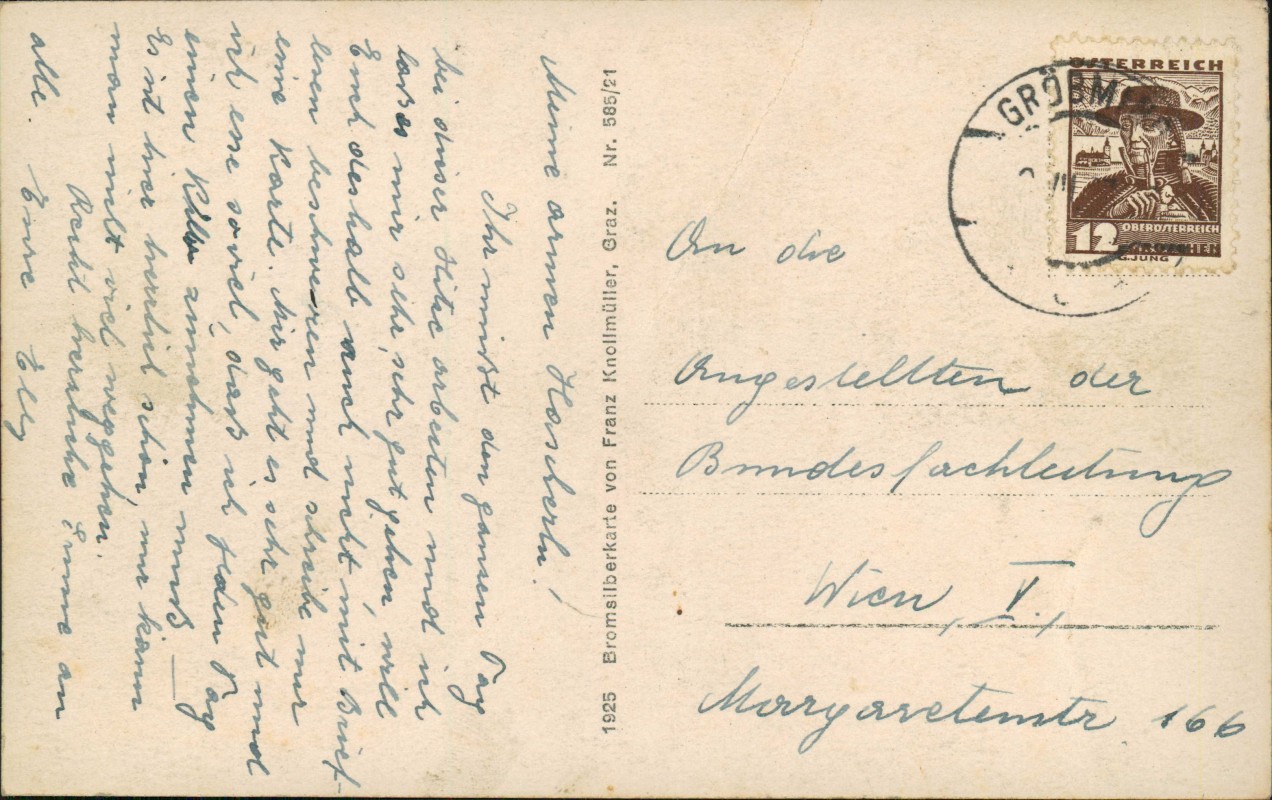 Meine armen Hascherln!
Ihr müßt den ganzen Tag
bei dieser Hitze arbeiten und ich
lasse es mir sehr, sehr gut gehen will
Euch deshalb auch nicht mit Brief-
lesen beschweren und schreibe nur
eine Karte. Mir geht es sehr gut und
ich esse soviel, dass ich jeden Tag
einen Kilo zunehmen muß —
Es ist hier herrlich schön, nur kann
man nicht viel weggehen.
Recht herzliche Grüsse an
alle. Eure Elly
1925 Bromsilberkarte von Franz Knollmüller, Graz. Nr. 585/21
ÖSTERREICH
OBERÖSTERREICH
12 GROSCHEN
G.JUNG
GRÖBM
An die
Angestellten der
Bundesfachleitung
Wien, V.,
Margaretenstr 166